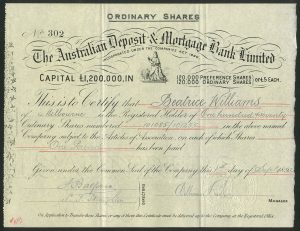 ORDINARY SHARES
No 302
The Australian Deposit & Mortgage Bank Limited
INCORPORATED UNDER THE COMPANIES ACT
CAPITAL £1,200,000, IN
120,000 PREFERENCE SHARES
120,000 ORDINARY SHARES
OF £5 EACH.
This is to Certify that Beatrice Williams
of Melbourne is the Registered Holder of One hundred
Ordinary Shares numbered in the above named
Company subject to the Articles of Association, on each of which Shares
has been paid
Given under the Common Seal of the Company this day of
DIRECTORS
MANAGER
On Application to Transfer these Shares or any of them this Certificate must be delivered up to the Company at the Registered Office.